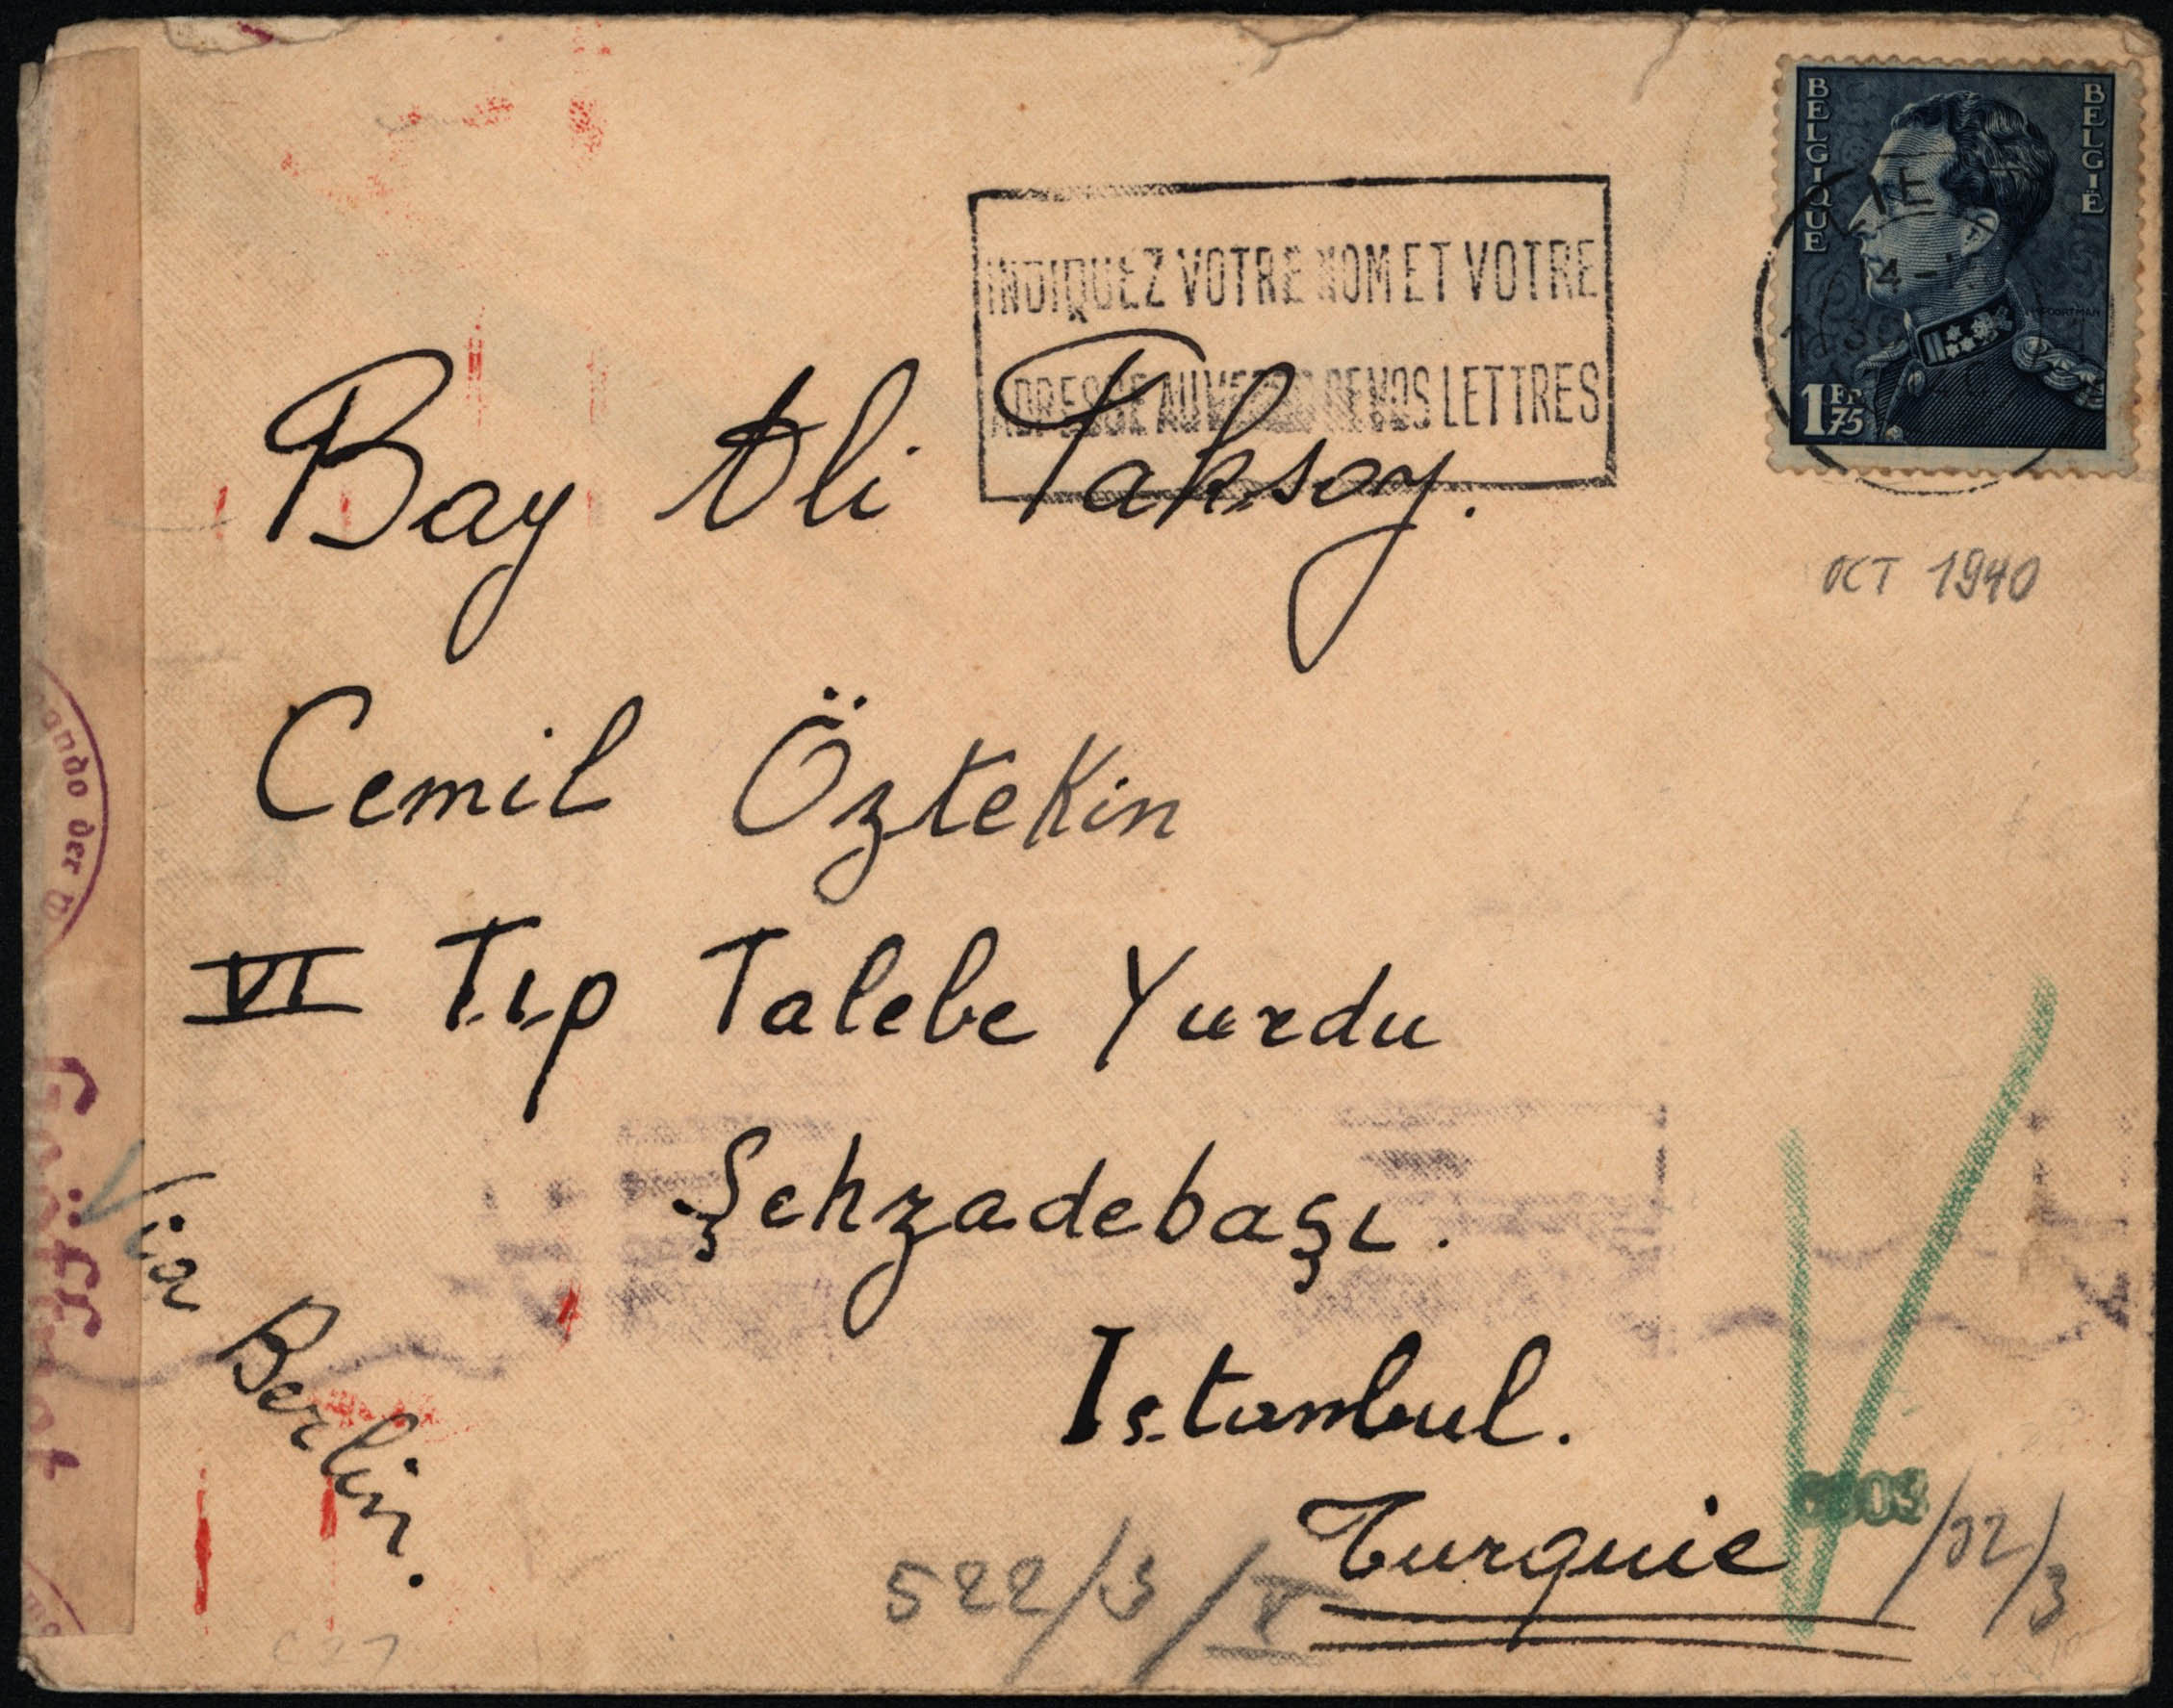 BELGIQUE
BELGIË
1 FR 75
INDIQUEZ VOTRE NOM ET VOTRE
ADRESSE AU VERSO DE VOS LETTRES
OCT 1940
Bay Ali Taksoy.
Cemil Öztekin
VI Tıp Talebe Yurdu
Şehzadebaşı.
Istanbul.
Turquie
Via Berlin.
522/3/V
/02/3
ando der
Geöffnet